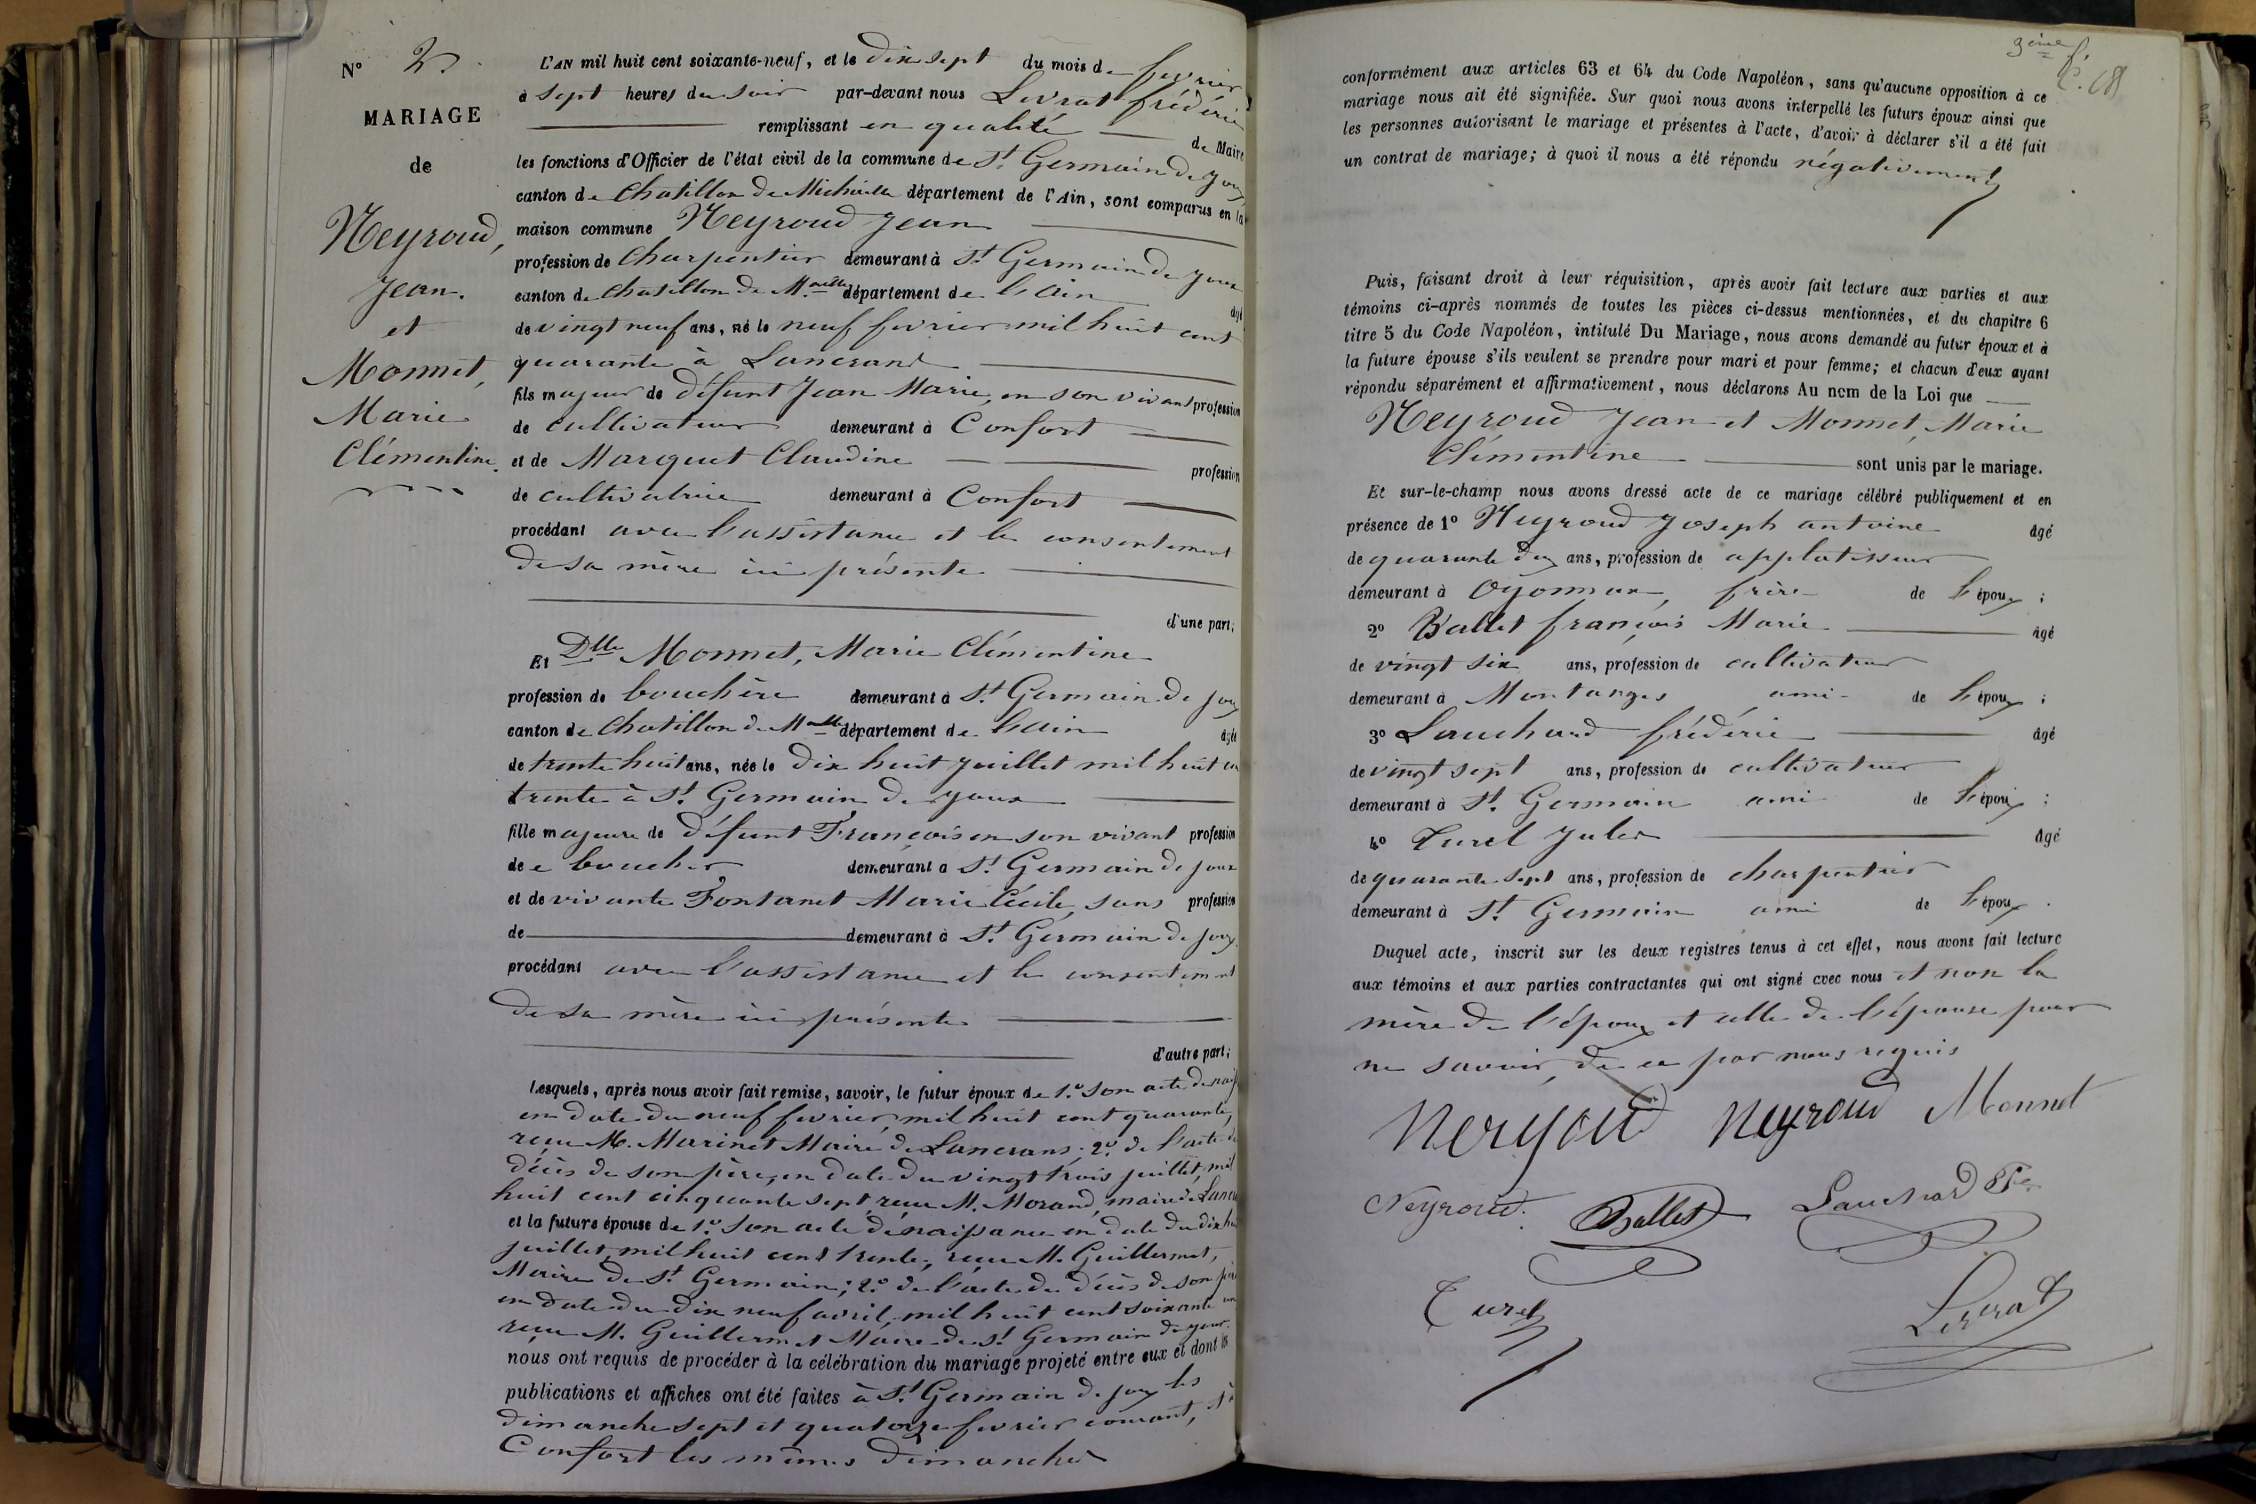 N° 2.
MARIAGE
de
Neyroud,
Jean.
et
Monnet,
Marie
Clémentine.
L'AN mil huit cent soixante-neuf, et le dix sept du mois de fevrier
à sept heures du soir par-devant nous Livrat frédéric
remplissant en qualité de Maire
les fonctions d'Officier de l'état civil de la commune de St. Germain de Joux
canton de Chatillon de Michaille département de l'Ain, sont comparus en la
maison commune Neyroud Jean
profession de Charpentier demeurant à St. Germain de Joux
canton de Chatillon de M.aille département de l'ain agé
de vingt neuf ans, né le neuf fevrier mil huit cent
quarante à Lancrans
fils majeur de défunt Jean Marie, en son vivant profession
de cultivateur demeurant à Confort
et de Marquet Claudine profession
de cultivatrice demeurant à Confort
procédant avec l'assistance et le consentement
de sa mère ici présente
d'une part;
Et Dlle Monnet, Marie Clémentine
profession de bouchère demeurant à St. Germain de Joux
canton de Chatillon de M.aille département de l'ain agée
de trente huit ans, née le dix huit juillet mil huit cent
trente à St. Germain de Joux
fille majeure de défunt François en son vivant profession
de boucher demeurant à St. Germain de Joux
et de vivante Fontanet Marie Cécile, sans profession
de demeurant à St. Germain de Joux
procédant avec l'assistance et le consentement
de sa mère ici présente
d'autre part;
Lesquels, après nous avoir fait remise, savoir, le futur époux de 1.° son acte de naiss
en date du neuf fevrier, mil huit cent quarante,
reçu M. Marinet Maire de Lancrans; 2.° de l'acte de
décès de son père, en date du vingt trois juillet, mil
huit cent cinquante sept, reçu M. Morand, maire de Lancr
et la future épouse de 1.° son acte de naissance en date du dix huit
juillet, mil huit cent trente, reçu M. Guillermet,
Maire de St. Germain; 2.° de l'acte de décès de son père
en date du dix neuf avril, mil huit cent soixante un
reçu M. Guillermet Maire de St. Germain de Joux.
nous ont requis de procéder à la célébration du mariage projeté entre eux et dont les
publications et affiches ont été faites à St. Germain de Joux les
dimanche sept et quatorze fevrier courant, et à
Confort les mêmes dimanches
3ème f.
conformément aux articles 63 et 64 du Code Napoléon, sans qu'aucune opposition à ce
mariage nous ait été signifiée. Sur quoi nous avons interpellé les futurs époux ainsi que
les personnes autorisant le mariage et présentes à l'acte, d'avoir à déclarer s'il a été fait
un contrat de mariage; à quoi il nous a été répondu négativement
Puis, faisant droit à leur réquisition, après avoir fait lecture aux parties et aux
témoins ci-après nommés de toutes les pièces ci-dessus mentionnées, et du chapitre 6
titre 5 du Code Napoléon, intitulé Du Mariage, nous avons demandé au futur époux et à
la future épouse s'ils veulent se prendre pour mari et pour femme; et chacun d'eux ayant
répondu séparément et affirmativement, nous déclarons Au nom de la Loi que
Neyroud Jean et Monnet, Marie
Clémentine sont unis par le mariage.
Et sur-le-champ nous avons dressé acte de ce mariage célébré publiquement et en
présence de 1° Neyroud Joseph antoine âgé
de quarante deux ans, profession de applatisseur
demeurant à Oyonnax, frère de l'époux;
2° Ballet françois Marie âgé
de vingt six ans, profession de cultivateur
demeurant à Montanges ami de l'époux;
3° Lauchard frédéric âgé
de vingt sept ans, profession de cultivateur
demeurant à St. Germain ami de l'époux;
4° Turel Jules âgé
de quarante sept ans, profession de charpentier
demeurant à St. Germain ami de l'époux.
Duquel acte, inscrit sur les deux registres tenus à cet effet, nous avons fait lecture
aux témoins et aux parties contractantes qui ont signé avec nous et non la
mère de l'époux et celle de l'épouse pour
ne savoir, de ce par nous requis
Neryoud Neyroud Monnet
Neyroud. Ballet Lauchard Fc
Turel Livrat